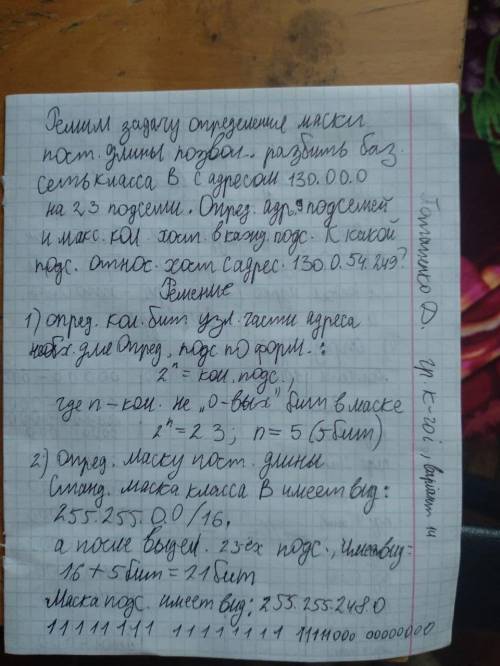 Решим задачу определение маски
пост. длины позвол. разбить баз.
сеть класса В с адресом 130.0 0.0
на 23 подсети. Опред. адр. 9 подсетей
и макс. кол хост. в кажд. подс. К какой
подс. относ. хост с адрес. 130.0.54.249?
Решение
1) опред. кол. бит узл. части адреса
необх. для опред. подс по форм.:
2ⁿ = кол. подс.,
где n – кол. не „0-вых" бит в маске
2ⁿ = 23; n = 5 (5 бит)
2) опред. маску пост. длины
Станд. маска класса В имеет вид:
255.255.0.0/16,
а после выдел. 23ех подс., имеет вид=
16 + 5 бит = 21 бит
Маска подс. имеет вид: 255.255.248.0
11111111 11111111 11111000 00000000
Д. гр. К-20і, варіант 14